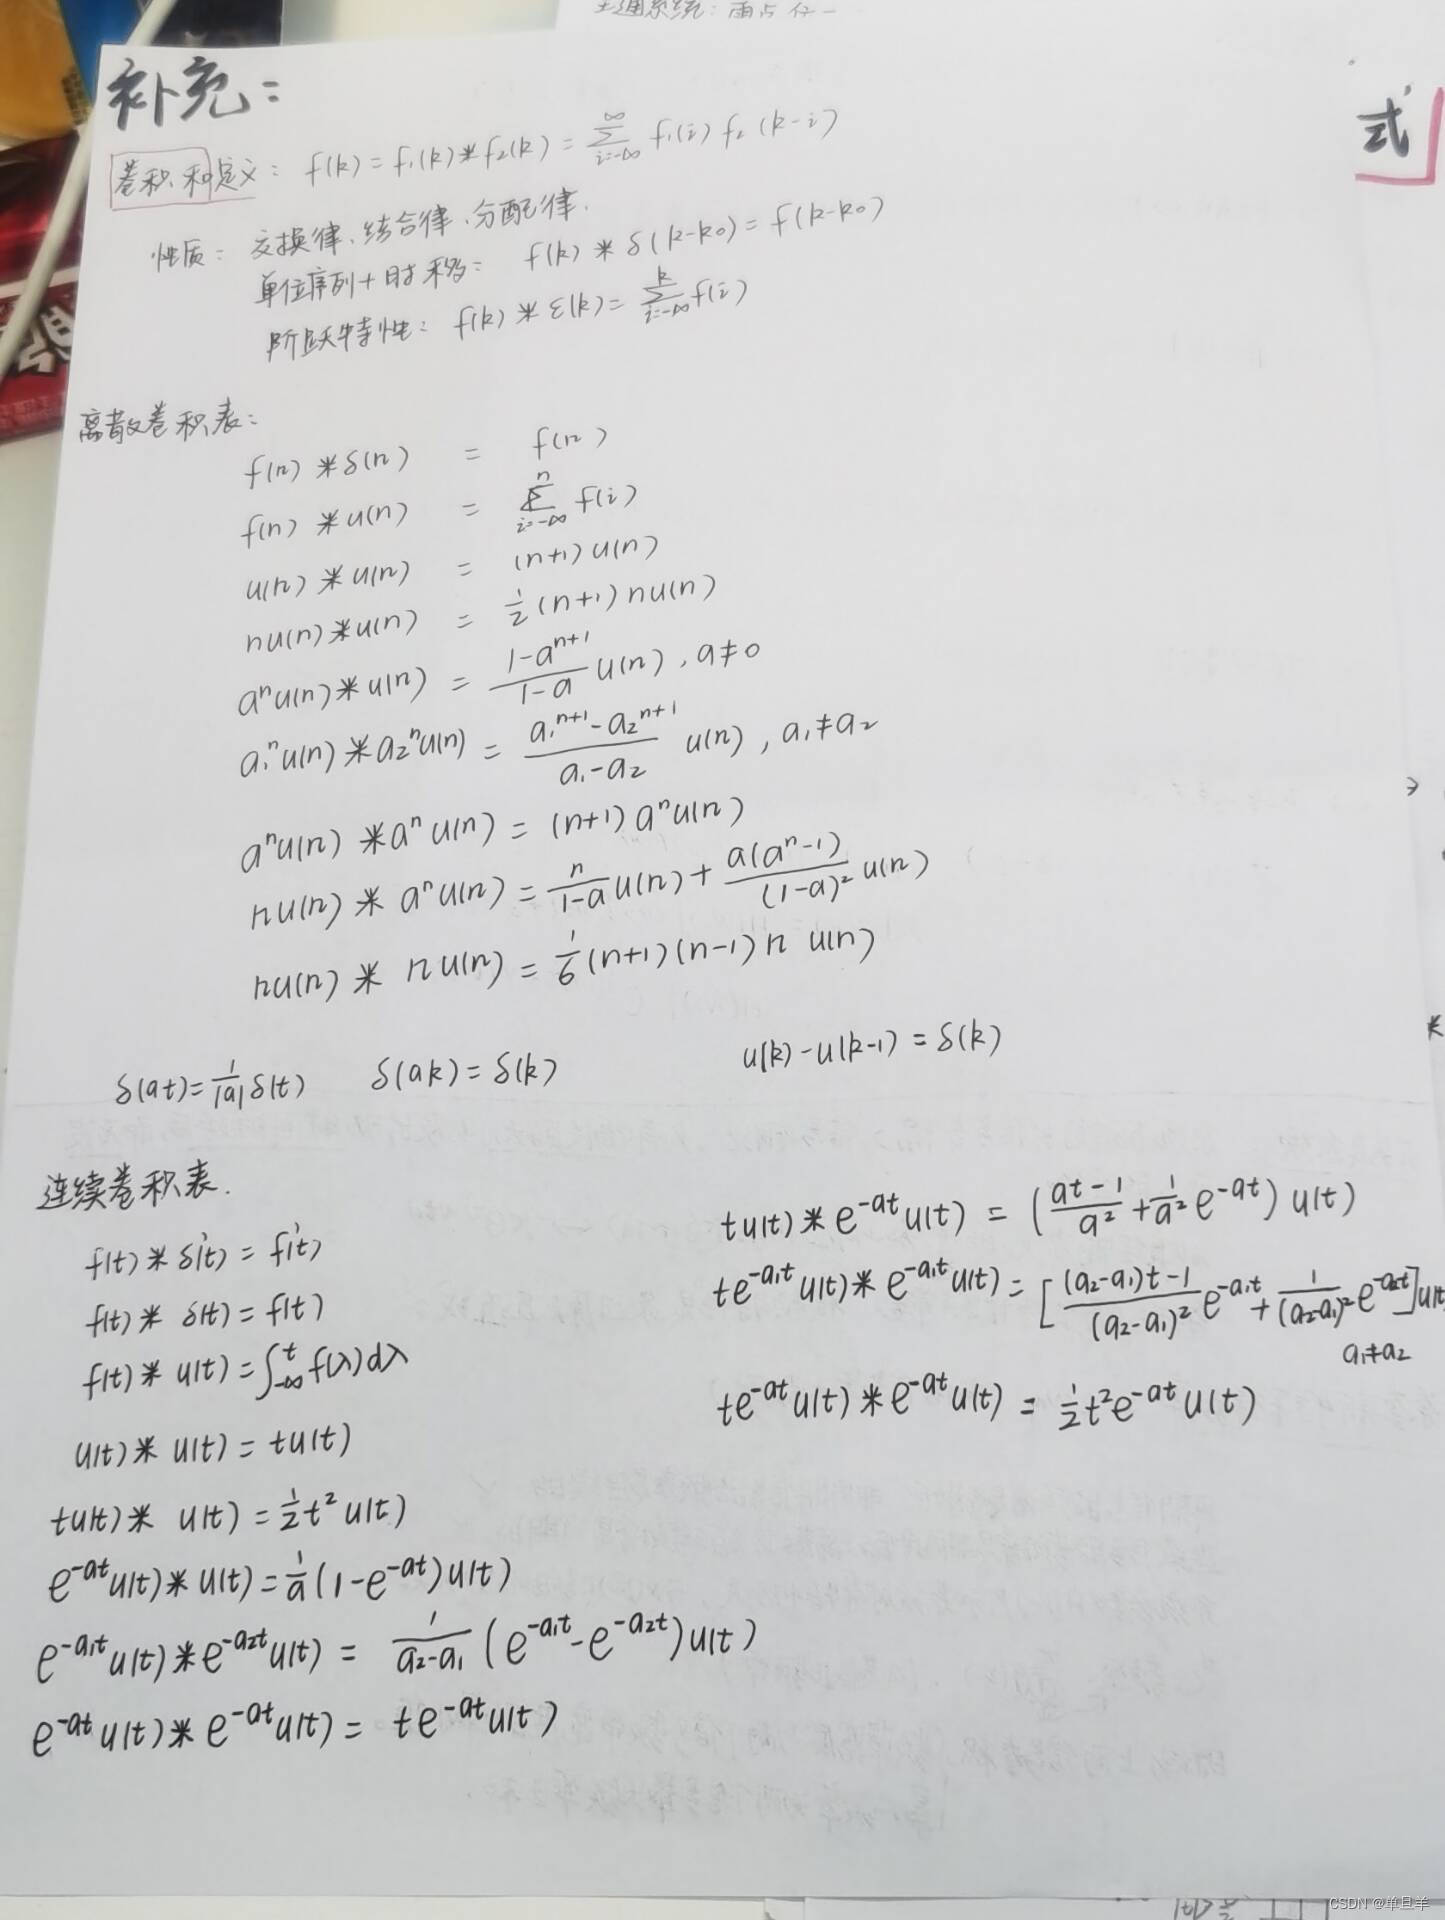 主通系统：
补充：
式
卷积和定义： f(k) = f₁(k) * f₂(k) = Σ_{i=-∞}^{∞} f₁(i) f₂(k-i)
性质： 交换律、结合律、分配律.
单位序列+时移： f(k) * δ(k-k₀) = f(k-k₀)
阶跃特性： f(k) * ε(k) = Σ_{i=-∞}^{k} f(i)
离散卷积表：
f(n) * δ(n) = f(n)
f(n) * u(n) = Σ_{i=-∞}^{n} f(i)
u(n) * u(n) = (n+1) u(n)
nu(n) * u(n) = ½ (n+1) n u(n)
aⁿu(n) * u(n) = (1-aⁿ⁺¹)/(1-a) u(n) , a≠0
a₁ⁿu(n) * a₂ⁿu(n) = (a₁ⁿ⁺¹-a₂ⁿ⁺¹)/(a₁-a₂) u(n) , a₁≠a₂
aⁿu(n) * aⁿu(n) = (n+1) aⁿu(n)
nu(n) * aⁿu(n) = n/(1-a) u(n) + a(aⁿ-1)/(1-a)² u(n)
nu(n) * nu(n) = 1/6 (n+1)(n-1) n u(n)
δ(at) = 1/|a| δ(t) δ(ak) = δ(k) u(k) - u(k-1) = δ(k)
连续卷积表.
f(t) * δ'(t) = f'(t)
f(t) * δ(t) = f(t)
f(t) * u(t) = ∫_{-∞}^{t} f(λ)dλ
u(t) * u(t) = tu(t)
tu(t) * u(t) = ½ t² u(t)
e^{-at}u(t) * u(t) = 1/a (1-e^{-at}) u(t)
e^{-a₁t}u(t) * e^{-a₂t}u(t) = 1/(a₂-a₁) (e^{-a₁t} - e^{-a₂t}) u(t)
e^{-at}u(t) * e^{-at}u(t) = te^{-at}u(t)
tu(t) * e^{-at}u(t) = ((at-1)/a² + 1/a² e^{-at}) u(t)
te^{-a₁t}u(t) * e^{-a₁t}u(t) = [((a₂-a₁)t-1)/(a₂-a₁)² e^{-a₁t} + 1/(a₂-a₁)² e^{-a₂t}] u(t
a₁≠a₂
te^{-at}u(t) * e^{-at}u(t) = ½ t² e^{-at} u(t)
CSDN @单旦羊